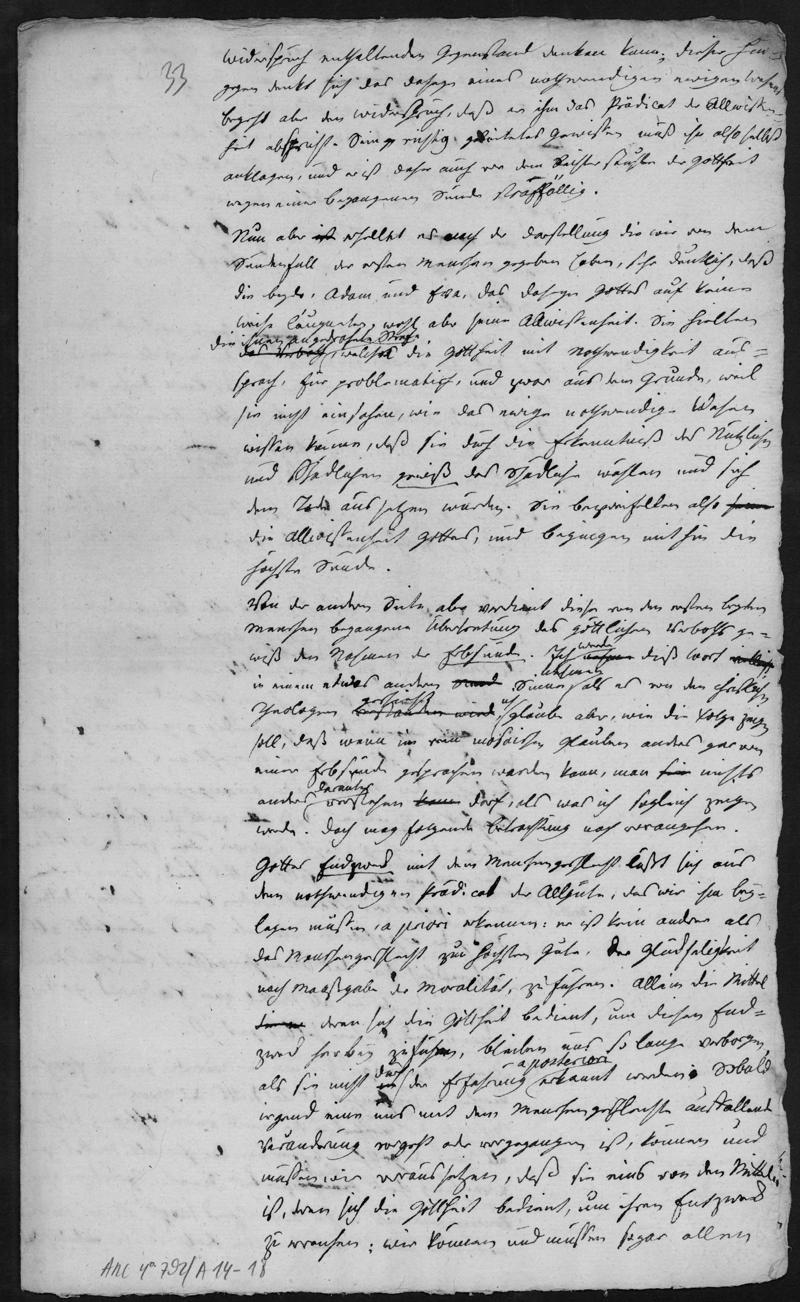 33
Widerspruch enthaltenden Gegenstand denken kann; dieser hin-
gegen denkt sich das Daseyn eines nothwendigen ewigen Wesens
begeht aber den Widerspruch, daß er ihm das Prädicat der Allwissen-
heit abspricht. Sein richtig geleitetes Gewissen muß ihn also selbst
anklagen, und er ist daher auch vor dem Richterstuhle der Gottheit
wegen einer begangenen Sünde straffällig.
Nun aber ist erhellet es auch der Darstellung die wir von dem
Sündenfall der ersten Menschen gegeben haben, sehr deutlich, daß
die beyde, Adam und Eva, das Daseyn Gottes auf keine
Weise läugneten, wohl aber seine Allwissenheit. Sie hielten
die ihnen angedrohete Strafe
das Verboth, welches die Gottheit mit Nothwendigkeit aus=
sprach, für problematisch, und zwar aus dem Grunde, weil
sie nicht einsahen, wie das ewige nothwendige Wesen
wissen könne, daß sie durch die Erkenntniß des Nützlichen
und Schädlichen gewiß das Schädliche wählen und sich
dem Tode aussetzen würden. Sie bezweifelten also
die Allwissenheit Gottes, und begingen mithin die
höchste Sünde.
Von der andern Seite aber verdient diese von den ersten beyden
Menschen begangene Übertretung des göttlichen Verboths ge=
wiß den Nahmen der Erbsünde. Ich werde dieß Wort
nehmen
in einem etwas anderen Sinne, als es von den christlichen
Theologen geschieht verstanden wird, ich glaube aber, wie die Folge zeigen
soll, daß wenn im rein mosaischen Glauben anders gar von
einer Erbsünde gesprochen werden kann, man nichts
anders darunter verstehen kann darf, als was ich sogleich zeigen
werde. Doch mag folgende Betrachtung noch vorangehen.
Gottes Endzweck mit dem Menschengeschlecht läßt sich aus
dem nothwendigen Prädicat der Allgüte, das wir ihm bey=
legen müssen, a priori erkennen: er ist kein andrer als
das Menschengeschlecht zum höchsten Gute, der Glückseligkeit
nach Maaßgabe der Moralität, zu führen. Allein die Mittel
deren sich die Gottheit bedient, um diesen End=
zweck herbey zu führen, bleiben uns so lange verborgen,
als sie nicht durch die Erfahrung a posteriori erkannt werden. Sobald
irgend eine uns mit dem Menschengeschlechte auffallende
Veränderung vorgeht oder vorgegangen ist, können und
müssen wir voraussetzen, daß sie eins von den Mitteln
ist, deren sich die Gottheit bedient, um ihren Endzweck
zu erreichen; wir können und müssen sogar allen
ARC 4° 792/A 14-18